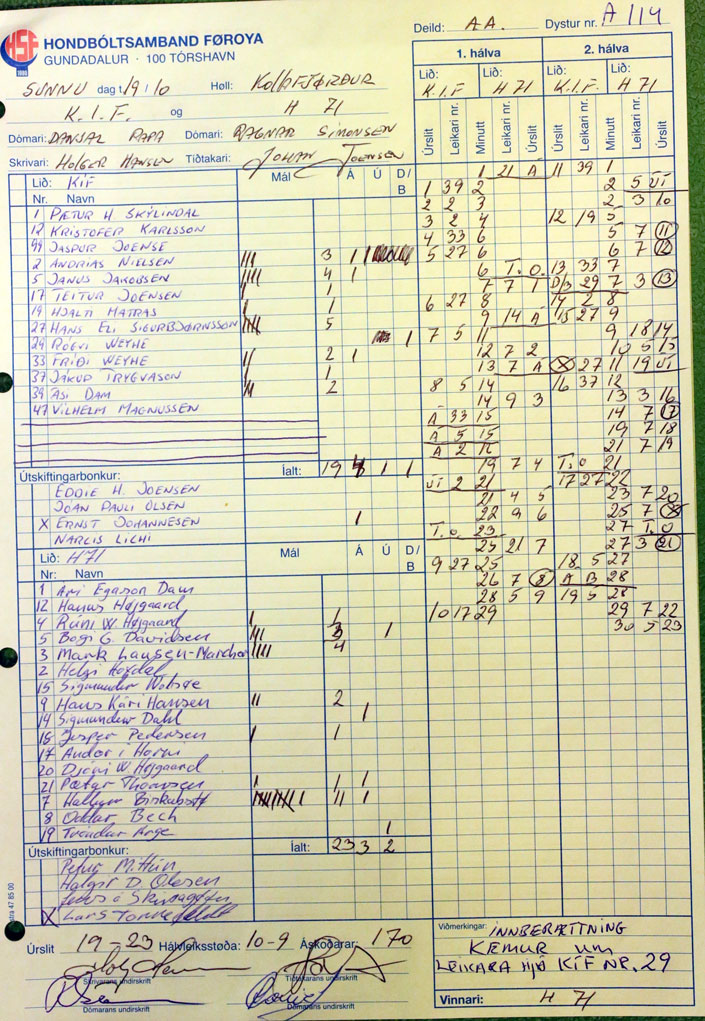 HSF
1980
HONDBÓLTSAMBAND FØROYA
GUNDADALUR · 100 TÓRSHAVN
Deild: AA.
Dystur nr. A 114
SUNNU dag t. 19/10 Høll: KOLLAFJØRÐUR
K.I.F. og H 71
Dómari: DANJAL PAPA Dómari: RAGNAR SIMONSEN
Skrivari: HOLGER HANSEN Tíðtakari: JOHAN JOENSEN
1. hálva 2. hálva
Lið: Lið: Lið: Lið:
K.I.F H 71 K.I.F. H 71
Úrslit Leikari nr. Minutt Leikari nr. Úrslit Úrslit Leikari nr. Minutt Leikari nr. Úrslit
Lið: KÍF Mál Á Ú D/B
Nr. Navn
1 PÆTUR H. SKÝLINDAL
12 KRISTOFER KARLSSON
99 JASPUR JOENSE
2 ANDRIAS NIELSEN 3 1 1
5 JANUS JAKOBSEN 4 1
17 TEITUR JOENSEN 1
19 HJALTI MATRAS 1
27 HANS ELI SIGURBJØRNSSON 5
29 RÓGVI WEYHE 1
33 FRIÐI WEYHE 2 1
37 JÁKUP TRYGVASON 1
39 ÁSI DAM 2
47 VILHELM MAGNUSSEN
Útskiftingarbonkur: Íalt: 19 1 1
EDDIE H. JOENSEN
JOAN PAULI OLSEN
X ERNST JOHANNESEN 1
NARCIS LICHI
Lið: H71 Mál Á Ú D/B
Nr: Navn
1 Ari Egason Dam
12 Hanus Højgaard
4 Rúni W. Højgaard 1
5 Bogi G. Davidsen 3 1
3 Mark Lausen-Marcher 4
2 Helgi Hoydal
15 Sigmundur
9 Hans Kári Hansen 2
14 Sigmundur Dahl 1
18 Jesper Pedersen 1
17 Andor í Horni
20 Djóni W Højgaard
21 Pætur Thomsen 1 1
7 Hallgrim 11 1
8 Oddar Bech
19 Tróndur Arge 1
Útskiftingarbonkur: Íalt: 23 3 2
Petur M.
Holgir D. Olesen
X Lars
1 21 Á 11 39 1
1 39 2 2 5 ÚT
2 2 3 2 3 10
3 2 4 12 19 5
4 33 6 5 7 11
5 27 6 6 7 12
6 T.O. 13 33 7
7 7 1 D/B 29 7 3 13
6 27 8 14 2 8
9 14 Á 15 27 9
7 5 11 9 18 14
12 7 2 10 5 15
13 7 Á X 27 11 19 ÚT
8 5 14 16 37 12
14 9 3 13 3 16
Á 33 15 14 7 17
Á 5 15 19 7 18
Á 2 16 21 7 19
19 7 4 T.O 21
ÚT 2 21 17 27 22
21 4 5 23 7 20
22 9 6 25 7 X
T.O. 23 27 T.O
25 21 7 27 3 21
9 27 25 18 5 27
26 7 8 Á B 28
28 5 9 19 5 28
10 17 29 29 7 22
30 5 23
Úrslit 19-23 Hálvleiksstøða: 10-9 Áskoðarar: 170
Skrivarans undirskrift Tíðtakarans undirskrift
Dómarans undirskrift Dómarans undirskrift
Viðmerkingar: INNBERÆTTNING
KEMUR UM
LEIKARA HJÁ KÍF NR. 29
Vinnari: H 71